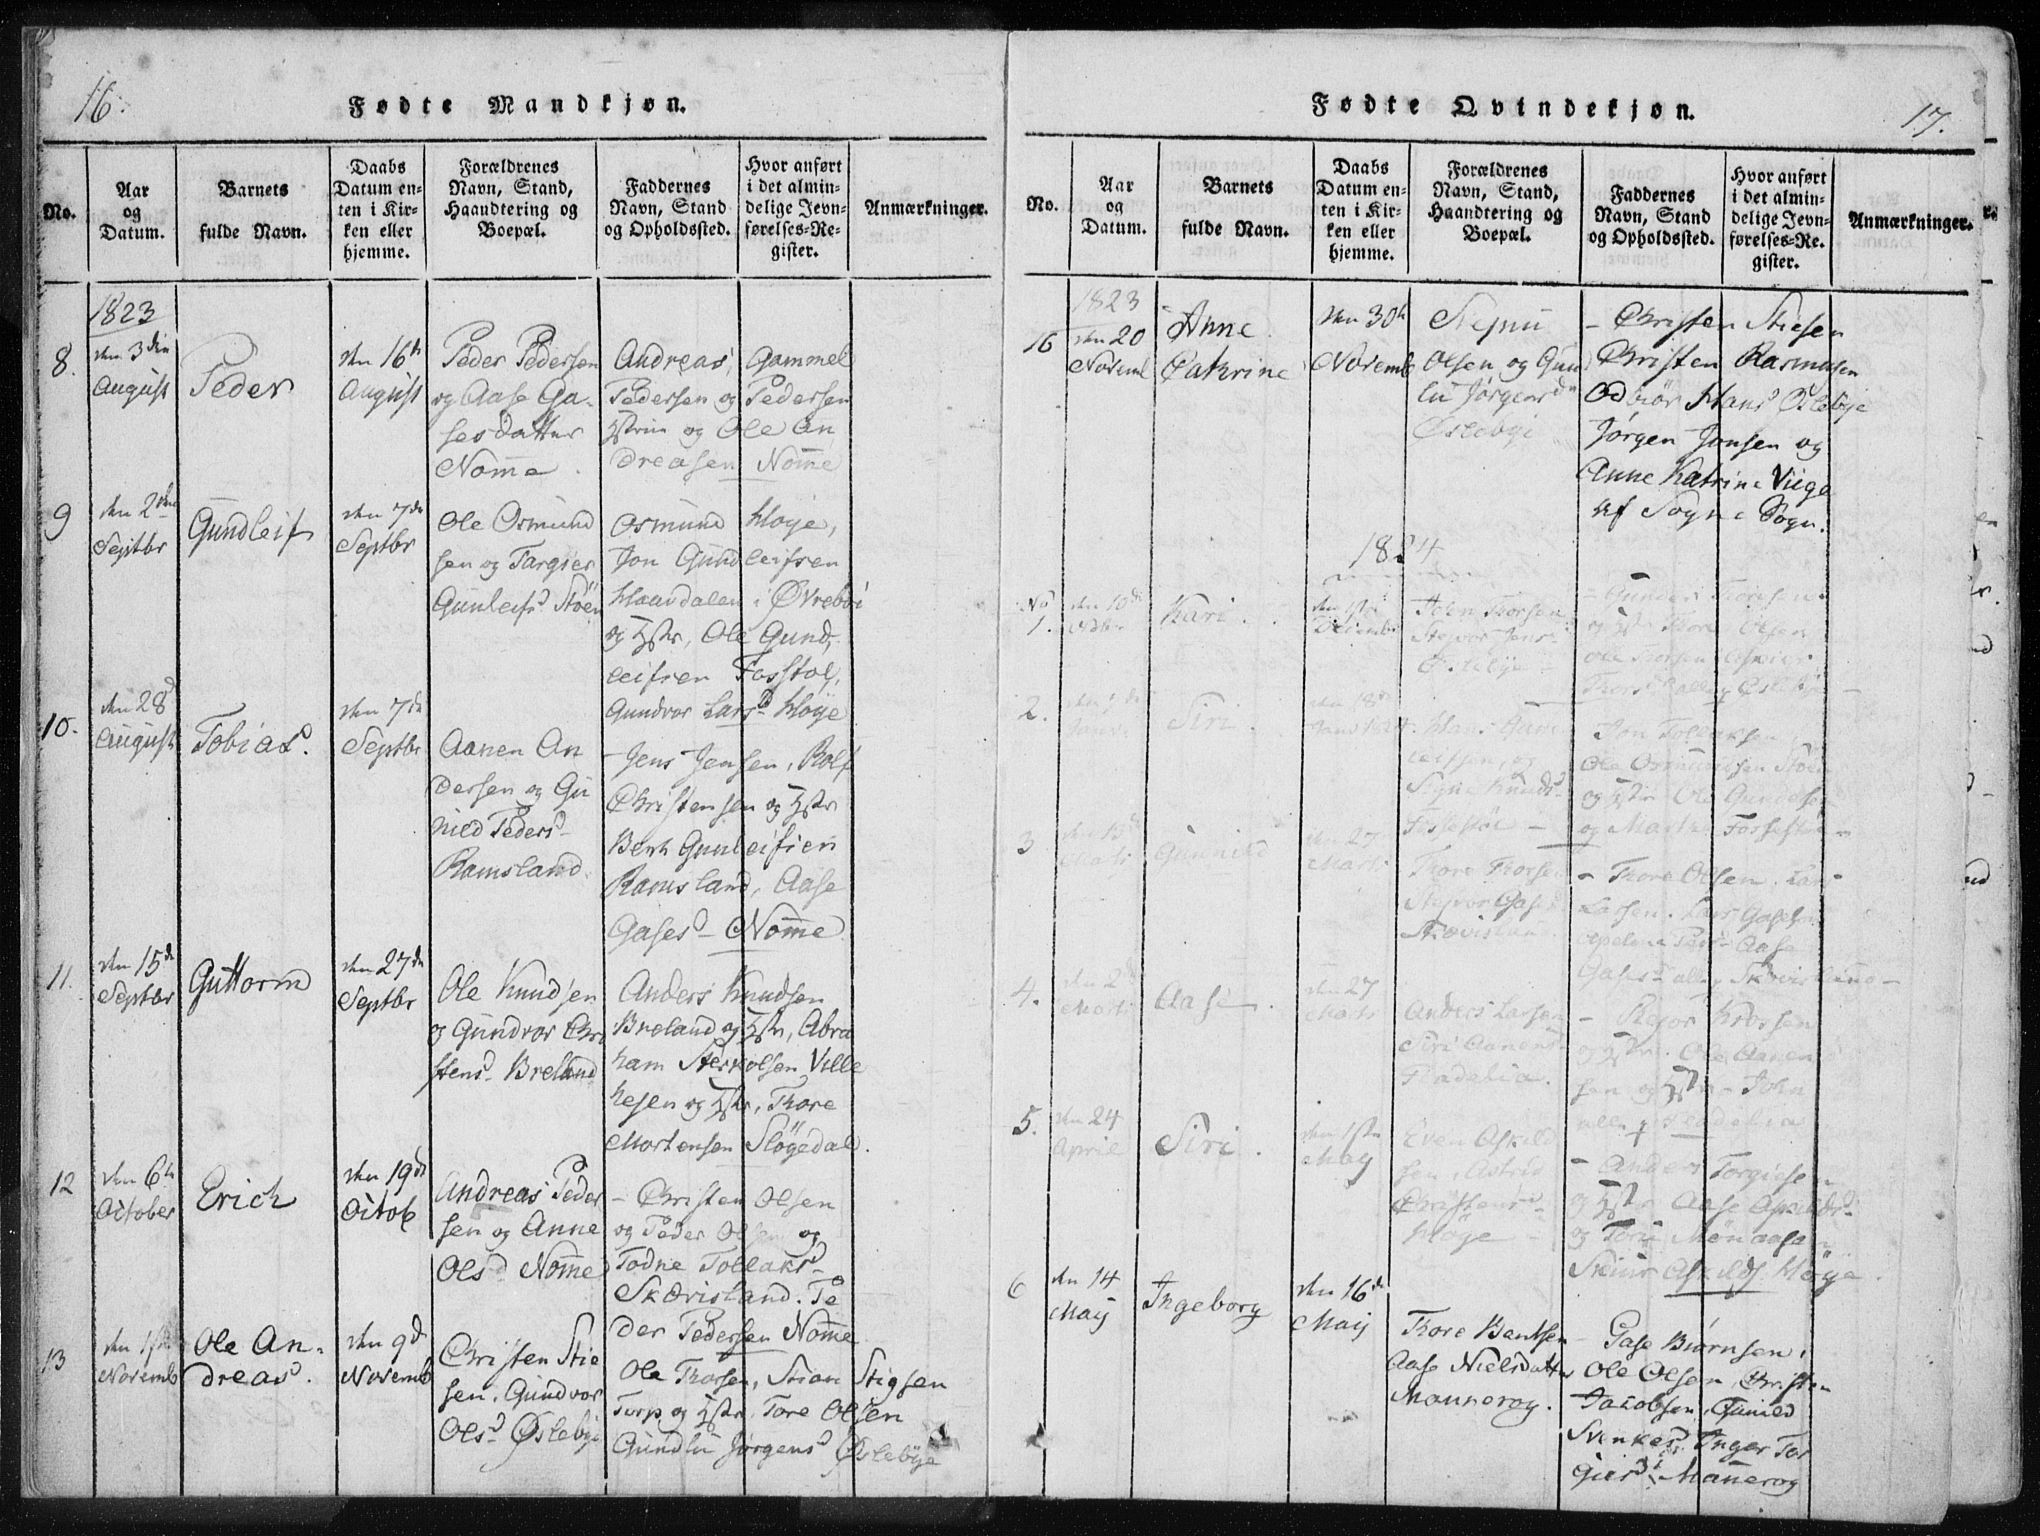 16.
Fødte Mandkjøn.
No.
Aar
og
Datum.
Barnets
fulde Navn.
Daabs
Datum en-
ten i Kir-
ken eller
hjemme.
Forældrenes
Navn, Stand,
Haandtering og
Boepæl.
Faddernes
Navn, Stand
og Opholdssted.
Hvor anført
i det almin-
delige Jevn-
førelses-Re-
gister.
Anmærkninger.
1823
8.
den 3die
August
Peder
den 16de
August
Peder Pedersen
og Aase Ga-
sesdatter
Nome.
Andreas, Gammel
Pedersen og Pedersen
Hstru og Ole An
dreasen Nome
9
den 2den
Septbr
Gundleif
den 7de
Septbr
Ole Osmund
sen og Targier
Gunleifsd Støen
Osmund Høye,
Jon Gundleifsen
Haandalen i Øvrebøi
og Hstr, Ole Gund,
leifsen Fosstøl,
Gundvor Larsd Høye
10.
den 28d
August
Tobias.
den 7de
Septbr
Aanen An
dersen og Gu
nild Pedersd
Ramsland.
- Jens Jensen, Rolf
Christensen og Hstr
Bent Gunleifsen
Ramsland, Aase
Gasesd - Nome
11.
den 15de
Septbr
Guttorm
den 27de
Septbr
Ole Knudsen
og Gundvor Chri
stensd Breland
Anders Knudsen
Breland og Hstr, Abra
ham Sterkolsen Ville
hesen og Hstr, Thore
Mortensen Sløgedal.
12
den 6te
October
Erich
den 19de
Octob
Andreas Peder
sen og Anne
Olsd Nome
- Christen Olsen
og Peder Olsen og
Todne Tollaksd
Skærisland. Pe
der Pedersen Nome
13
den 1ste
Novemb
Ole An-
dreas.
den 9d
Novemb
Christen Stie
sen, Gundvor
Olsd Øslebye
Ole Thorsen, Stian Stigsen
Torp og Hstr, Tore Olsen
Gundlu Jørgensd Øslebye
17.
Fødte Qvindekjøn.
No.
Aar
og
Datum.
Barnets
fulde Navn.
Daabs
Datum en-
ten i Kir-
ken eller
hjemme.
Forældrenes
Navn, Stand,
Haandtering og
Boepæl.
Faddernes
Navn, Stand
og Opholdssted.
Hvor anført
i det almin-
delige Jevn-
førelses-Re-
gister.
Anmærkninger.
1823
16
den 20
Noveml
Anne
Cathrine
den 30te
Novemb
Olsen og Gun
lu Jørgensd
Øslebye
- Christen Stiesen
Christen Rasmusen
Odbiør Hansd Øslebye
Jørgen Jonsen og
Anne Katrine Viige
af Sogne Sogn.
1824
No
1.
den 10de
Kari.
den 1ste
Decemb
Aden Thorsen
Stevor Jensd
Øslebye
- Gunder Thorsen
og Hstr Thore Olsen
Ole Thorsen
Thorsd alle Øslebye
2.
Siri.
den 18de
Hans Gund
leifsen, og
Signe Knudsd
Fossestøl -
Jon Tollaksen,
Ole Osmundsen Støen
og Hstr Ole Gundlesen
og Marthe Fossestøl
3
Marti
Gunnild
den 27
Marti
Thore Thorsen
Stevor Gasesd
Skævisland
- Thore Olsen. Lars
Larsen. Lars Gasesen
Aase
Gasesd alle Skævisland -
4.
den 2d
Marti
Aase.
den 27
Marti
Anders Larsen
Siri Aanensd
- Reyer
og Hstr. Ole Aanen
sen og Hstr - John
5.
den 24
April
Siri.
den 1ste
May
Even Askild
sen, Astrid
Christensd
Høye
- Anders Torgiesen
og Hstr Aase Askildsd
og Tore
Askilds. Høye.
6
den 14
May
Ingeborg
den 16de
May
Thore Bentsen
Aase Nielsdatter
Mannerog.
- Gase Biørnsen,
Ole Olsen, Christen
Jakobsen, Gunild
Svenkesd. Inger Tor
giersd: Manerog